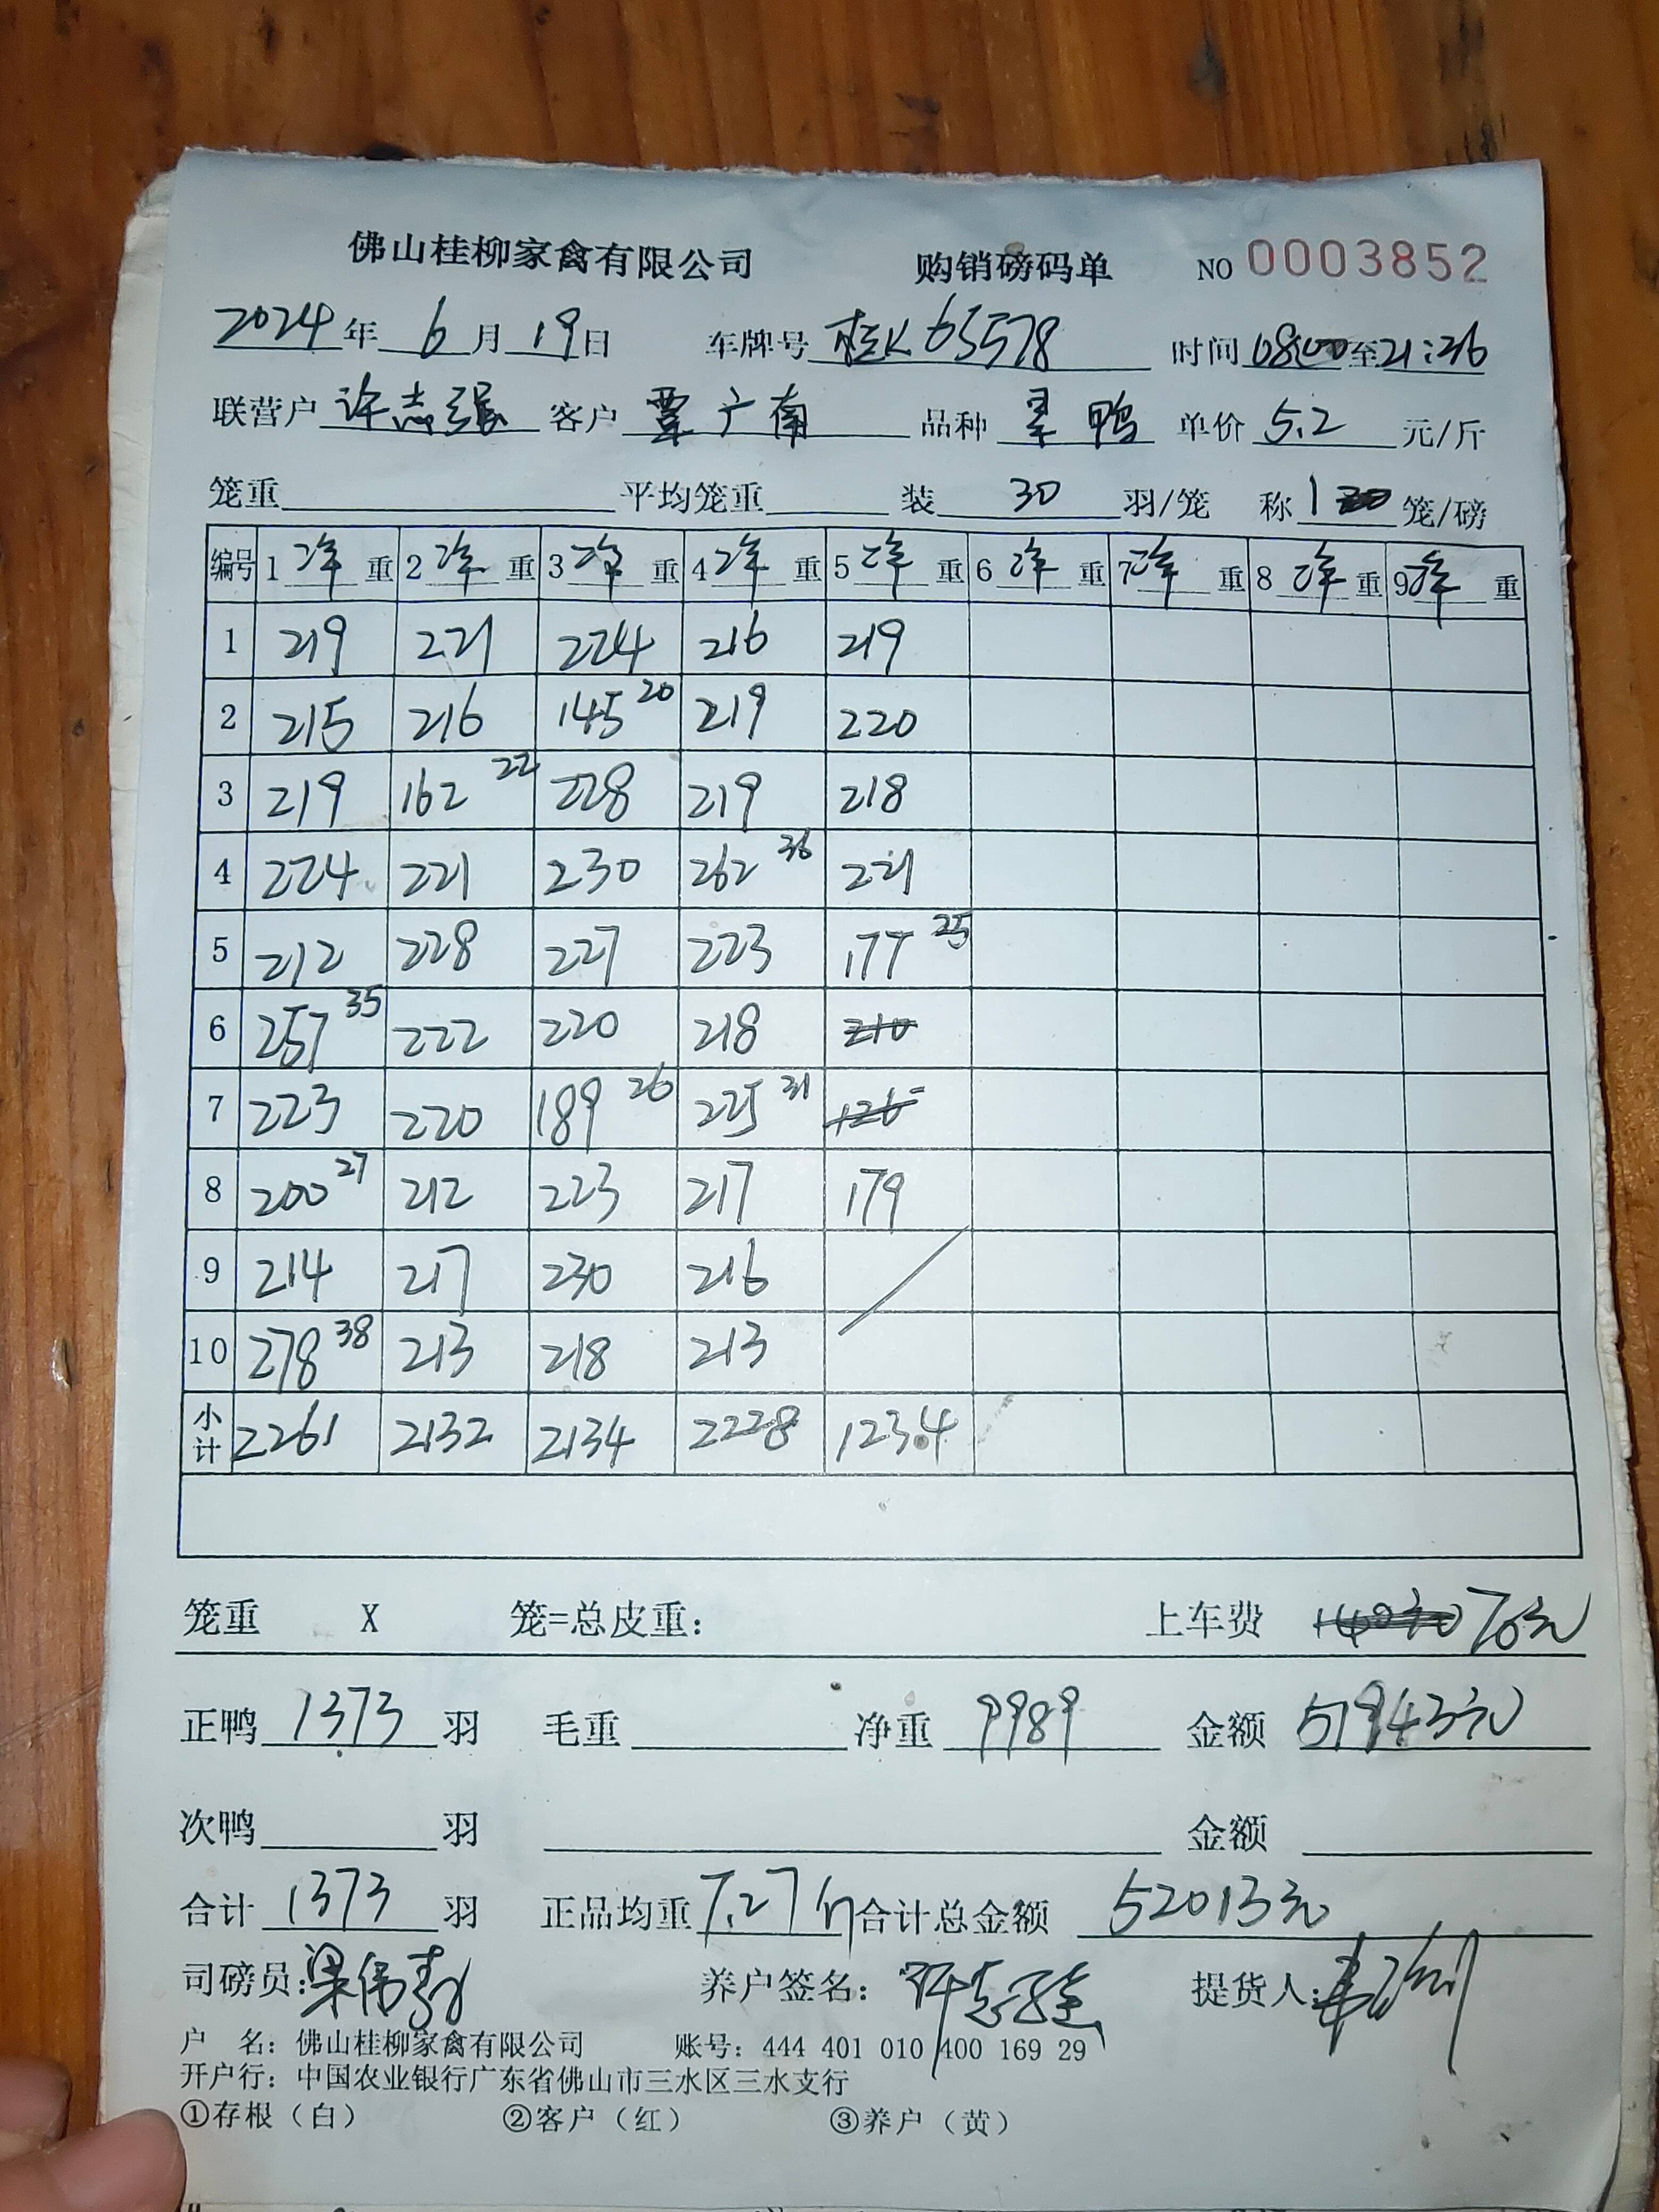 佛山桂柳家禽有限公司 购销磅码单 NO 0003852
2024年 6月 19日 车牌号 桂K65578 时间 08:00至21:36
联营户 许志强 客户 覃广南 品种 鸭 单价 5.2 元/斤
笼重 平均笼重 装 30 羽/笼 称 1 笼/磅
编号 1 净 重 2 净 重 3 净 重 4 净 重 5 净 重 6 净 重 7 净 重 8 净 重 9 净 重
1 219 221 224 216 219
2 215 216 145 20 219 220
3 219 162 22 228 219 218
4 224 221 230 262 36 221
5 212 228 227 223 177 25
6 257 35 222 220 218 210
7 223 220 189 26 225 31 126
8 200 27 212 223 217 179
9 214 217 230 216
10 278 38 213 218 213
小计 2261 2132 2134 2228 1234
笼重 X 笼=总皮重: 上车费 70元
正鸭 1373 羽 毛重 净重 9989 金额 51943元
次鸭 羽 金额
合计 1373 羽 正品均重 7.27斤 合计总金额 52013元
司磅员: 养户签名: 许志强 提货人:
户 名: 佛山桂柳家禽有限公司 账号: 444 401 010 400 169 29
开户行: 中国农业银行广东省佛山市三水区三水支行
①存根(白) ②客户(红) ③养户(黄)